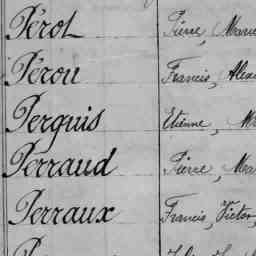 Pérot Pierre, Marie
Pérou Francis, Alex
Perguis Etienne, M
Perraud Pierre, Ma
Perraux Francis, Victor,